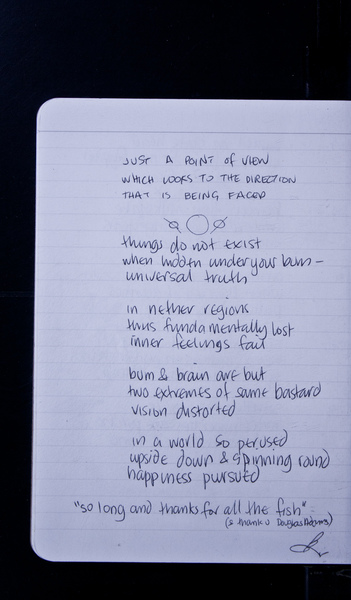 JUST A POINT of VIEW
WHICH LOOKS TO THE DIRECTION
THAT IS BEING FACED
things do not exist
when hidden under your bum –
universal truth
in nether regions
thus fundamentally lost
inner feelings fail
bum & brain are but
two extremes of same bastard
vision distorted
in a world so perused
upside down & spinning round
happiness pursued
"so long and thanks for all the fish"
(& thank u Douglas Adams)